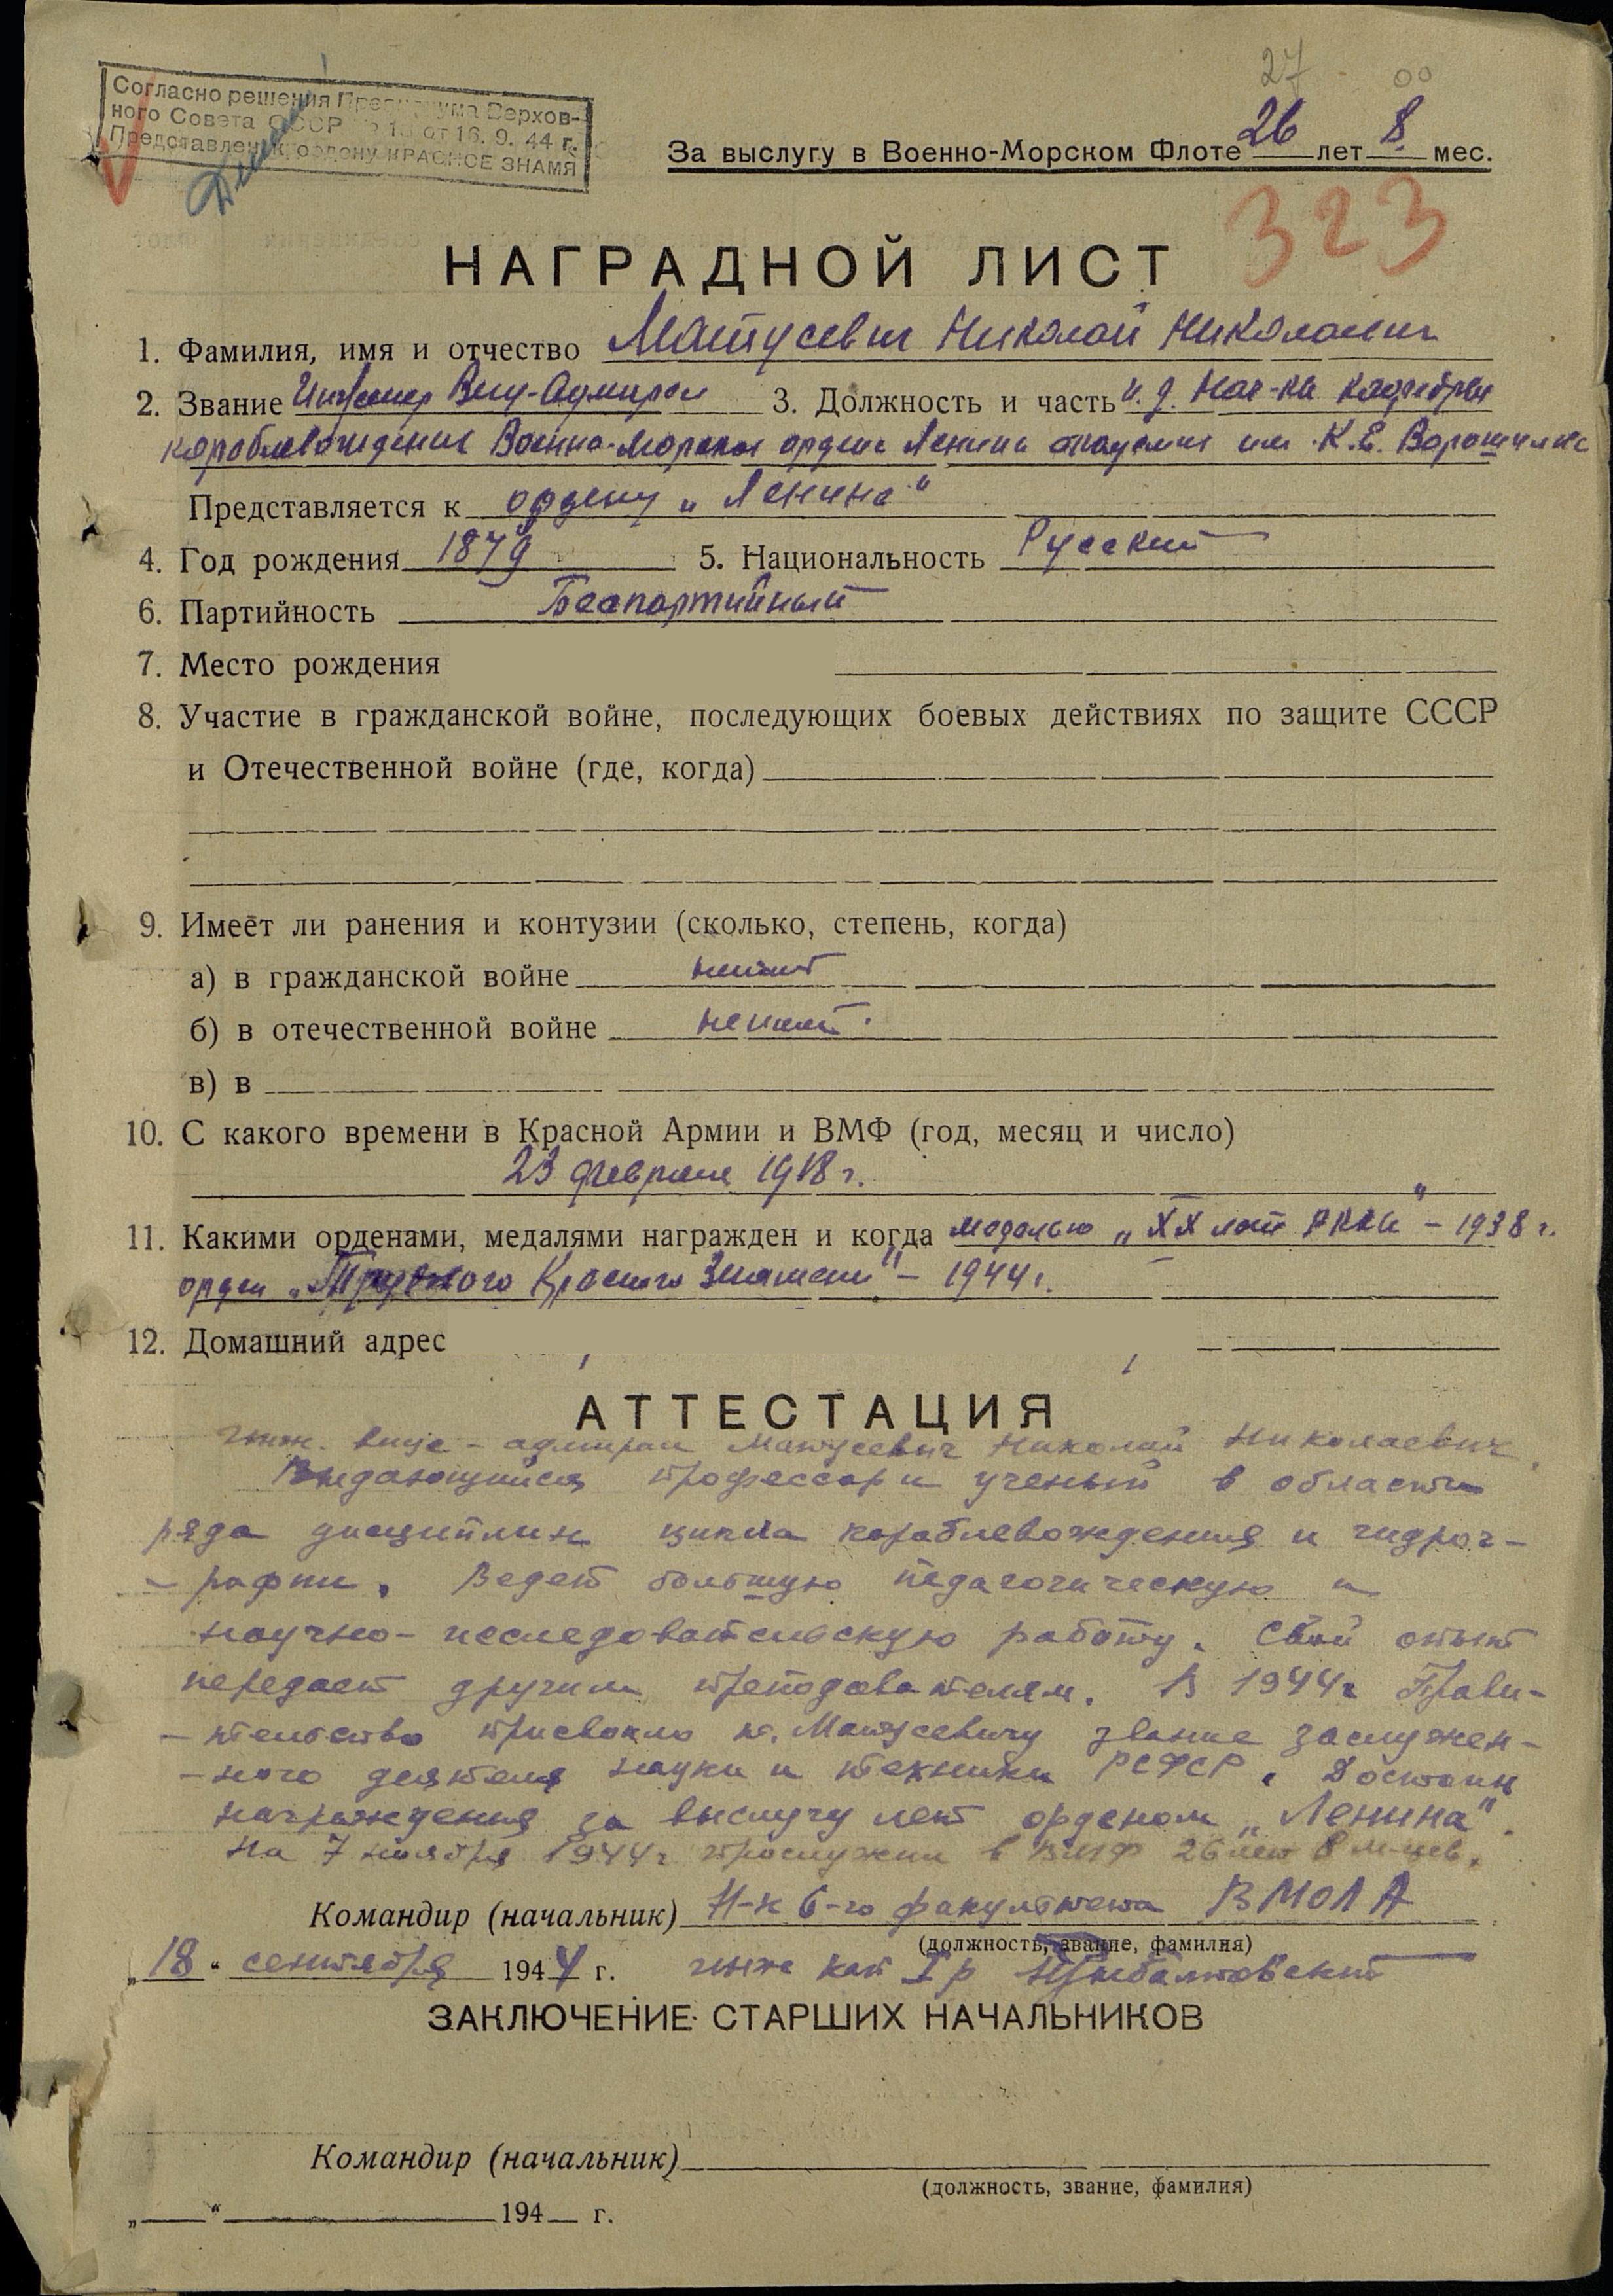 27 00
Согласно решения Президиума Верхов-
ного Совета СССР от 16. 9. 44 г.
Представлен к ордену КРАСНОЕ ЗНАМЯ
За выслугу в Военно-Морском Флоте 26 лет 8 мес.
323
НАГРАДНОЙ ЛИСТ
1. Фамилия, имя и отчество Матусевич Николай Николаевич
2. Звание Инженер Вице-Адмирал 3. Должность и часть и. д. Нач-ка кафедры
кораблевождения Военно-морской ордена Ленина академии им. К.Е. Ворошилова
Представляется к ордену „Ленина"
4. Год рождения 1879 5. Национальность Русский
6. Партийность Беспартийный
7. Место рождения
8. Участие в гражданской войне, последующих боевых действиях по защите СССР
и Отечественной войне (где, когда)
9. Имеет ли ранения и контузии (сколько, степень, когда)
а) в гражданской войне неимеет
б) в отечественной войне неимеет.
в) в
10. С какого времени в Красной Армии и ВМФ (год, месяц и число)
23 февраля 1918 г.
11. Какими орденами, медалями награжден и когда медалью „XX лет РККА" - 1938 г.
орден „Трудового Красного Знамени" - 1944 г.
12. Домашний адрес
АТТЕСТАЦИЯ
Инж. вице-адмирал Матусевич Николай Николаевич.
Выдающийся профессор и ученый в области
ряда дисциплин цикла кораблевождения и гидрог-
-рафии. Ведет большую педагогическую и
научно-исследовательскую работу. Свой опыт
передает другим преподавателям. В 1944г Прави-
-тельство присвоило т. Матусевичу звание заслужен-
-ного деятеля науки и техники РСФСР. Достоин
награждения за выслугу лет орденом „Ленина".
На 7 ноября 1944г прослужил в ВМФ 26 лет 8 м-цев.
Командир (начальник) Н-к 6-го факультета ВМОЛА
(должность, звание, фамилия)
„18" сентября 1944 г. инж кап I р
ЗАКЛЮЧЕНИЕ СТАРШИХ НАЧАЛЬНИКОВ
Командир (начальник)
(должность, звание, фамилия)
„ " 194 г.